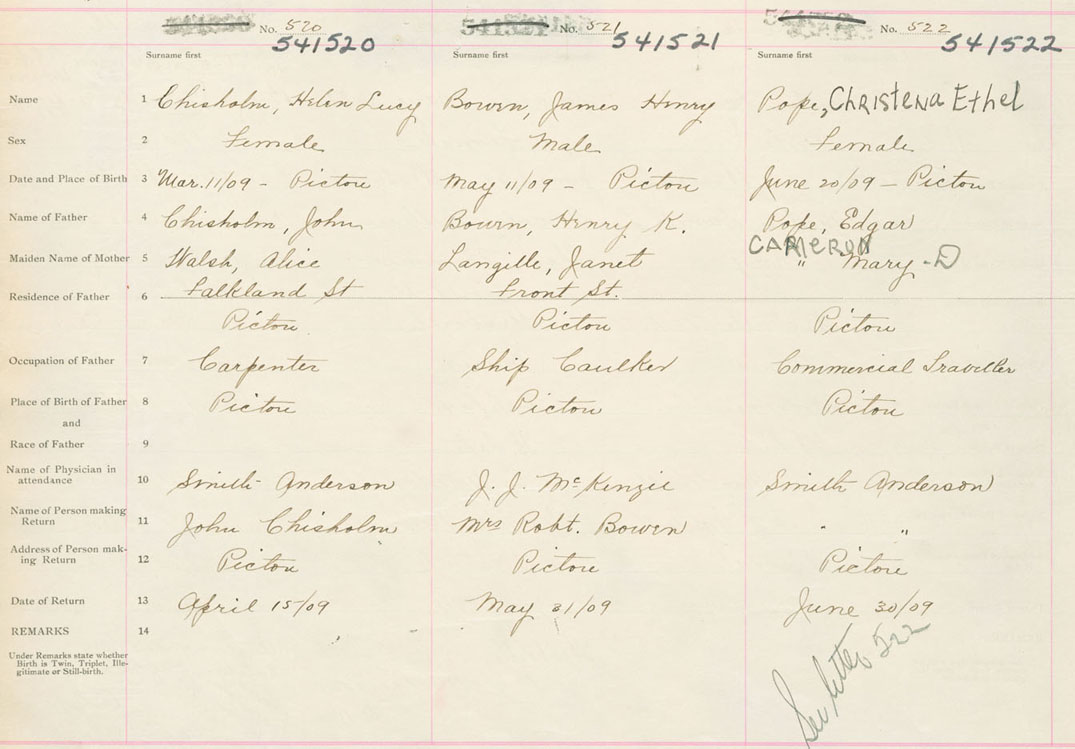 No. 520 No. 521 No. 522
541520 541521 541522
Surname first Surname first Surname first
Name 1 Chisholm, Helen Lucy Bowen, James Henry Pope, Christena Ethel
Sex 2 Female Male Female
Date and Place of Birth 3 Mar. 11/09 - Pictou May 11/09 - Pictou June 20/09 - Pictou
Name of Father 4 Chisholm, John Bowen, Henry K. Pope, Edgar
CAMERON
Maiden Name of Mother 5 Walsh, Alice Langille, Janet " Mary - D
Residence of Father 6 Falkland St Front St.
Pictou Pictou Pictou
Occupation of Father 7 Carpenter Ship Caulker Commercial Traveller
Place of Birth of Father 8 Pictou Pictou Pictou
and
Race of Father 9
Name of Physician in
attendance 10 Smith Anderson J. J. McKenzie Smith Anderson
Name of Person making
Return 11 John Chisholm Mrs Robt. Bowen " "
Address of Person mak-
ing Return 12 Pictou Pictou Pictou
Date of Return 13 April 15/09 May 31/09 June 30/09
REMARKS 14
Under Remarks state whether
Birth is Twin, Triplet, Ille-
gitimate or Still-birth.
See letter 522